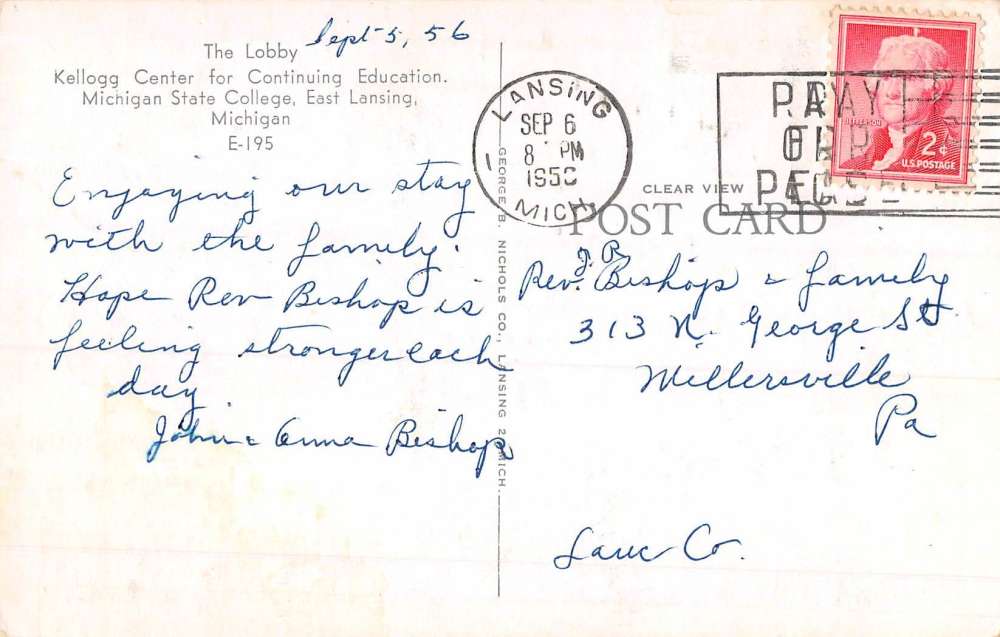 Sept 5, 56
The Lobby
Kellogg Center for Continuing Education.
Michigan State College, East Lansing,
Michigan
E-195
Enjoying our stay
with the family.
Hope Rev Bishop is
feeling stronger each
day
John & Anna Bishop
GEORGE B. NICHOLS CO., LANSING 2, MICH.
LANSING
SEP 6
8 PM
MICH.
PRAY
FOR
PEACE
JEFFERSON
2¢
U.S. POSTAGE
CLEAR VIEW
POST CARD
J. R.
Rev. Bishop & family
313 N. George St.
Millersville
Pa
Lanc Co.